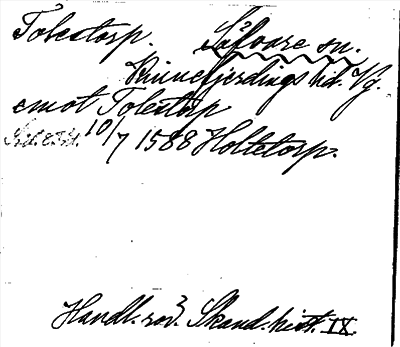 Tolestorp. Såtvare sn.
Kinnefjerdings hd. Vg.
emot Tolestorp
10/7 1588 Holtetorp.
Handl. rör. Skand. hist. IX.